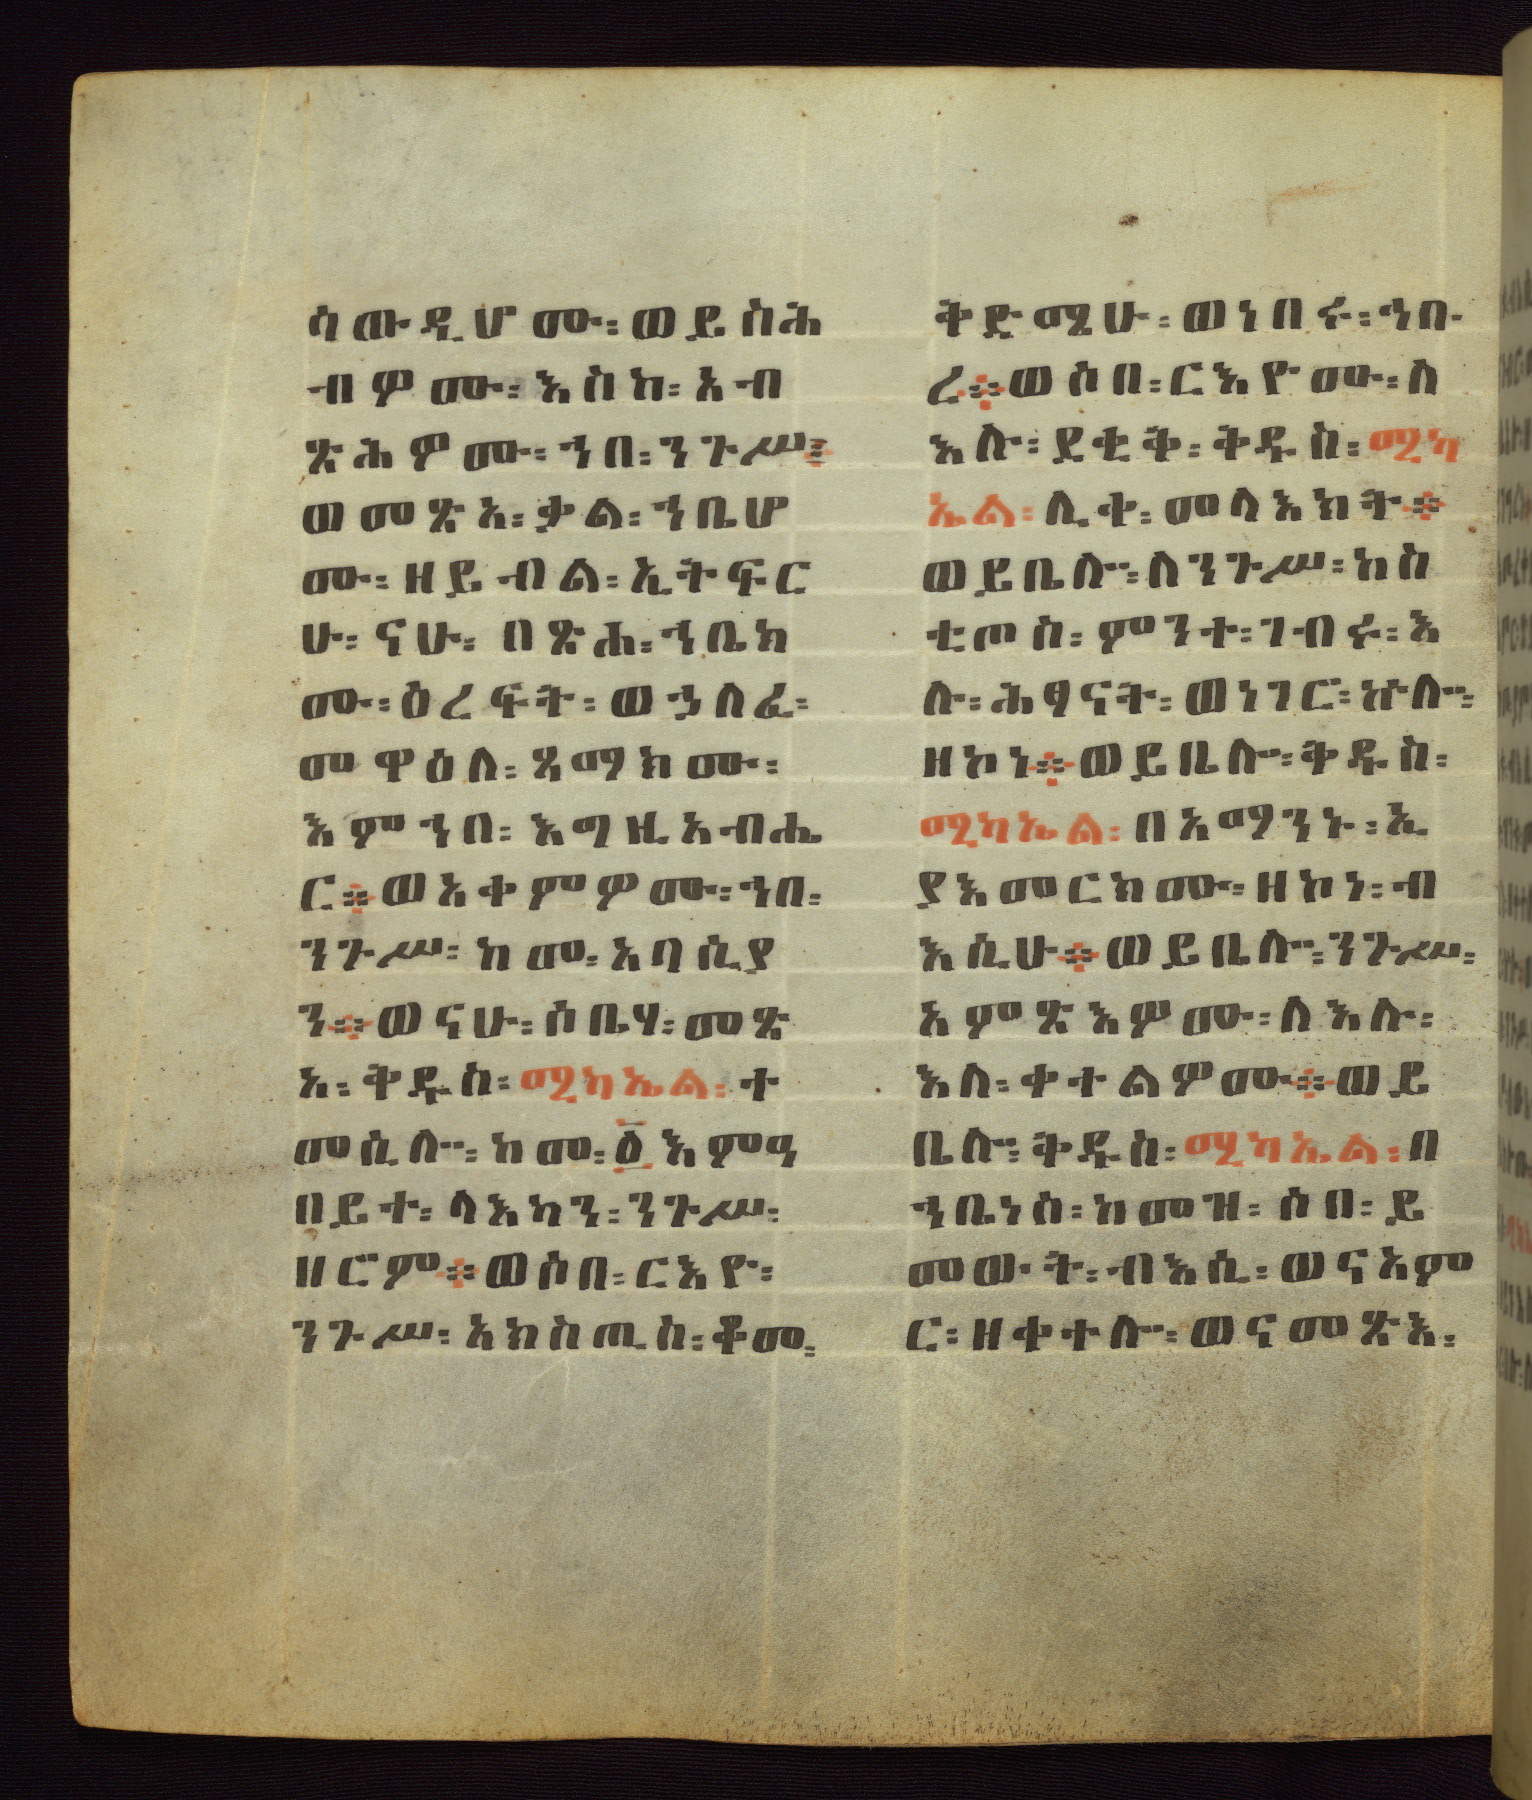 ሳውዲሆሙ፡ወይስሕ
ብዎሙ፡እስከ፡አብ
ጽሕዎሙ፡ኀበ፡ንጉሥ፡
ወመጽአ፡ቃል፡ኀቤሆ
ሙ፡ዘይብል፡ኢትፍር
ሁ፡ናሁ፡በጽሐ፡ኀቤክ
ሙ፡ዕረፍት፡ወኃለፈ፡
መዋዕለ፡ጻማክሙ፡
እምኀበ፡እግዚአብሔ
ር፨ወአቀምዎሙ፡ኀበ፡
ንጉሥ፡ከመ፡አባሲያ
ን፨ወናሁ፡ሶቤሃ፡መጽ
አ፡ቅዱስ፡ሚካኤል፡ተ
መሲሎ፡ከመ፡፩እምዓ
በይተ፡ላእካን፡ንጉሥ፡
ዘሮም፨ወሶበ፡ርእዮ፡
ንጉሥ፡አክስጢስ፡ቆመ፡
ቅድሜሁ፡ወነበሩ፡ኅቡ
ረ፨ወሶበ፡ርእዮሙ፡ለ
እሉ፡ደቂቅ፡ቅዱስ፡ሚካ
ኤል፡ሊቀ፡መላእክት፨
ወይቤሎ፡ለንጉሥ፡ከስ
ቲጦስ፡ምንተ፡ገብሩ፡እ
ሉ፡ሕፃናት፡ወነገሮ፡ኵሎ፡
ዘኮነ፨ወይቤሎ፡ቅዱስ፡
ሚካኤል፡በአማንኑ፡ኢ
ያእመርክሙ፡ዘኮነ፡ብ
እሲሁ፨ወይቤሎ፡ንጉሥ፡
አምጽእዎሙ፡ለእሉ፡
እለ፡ቀተልዎሙ፨ወይ
ቤሎ፡ቅዱስ፡ሚካኤል፡በ
ኀቤነሰ፡ከመዝ፡ሶበ፡ይ
መውት፡ብእሲ፡ወናአም
ር፡ዘቀተሎ፡ወናመጽእ፡